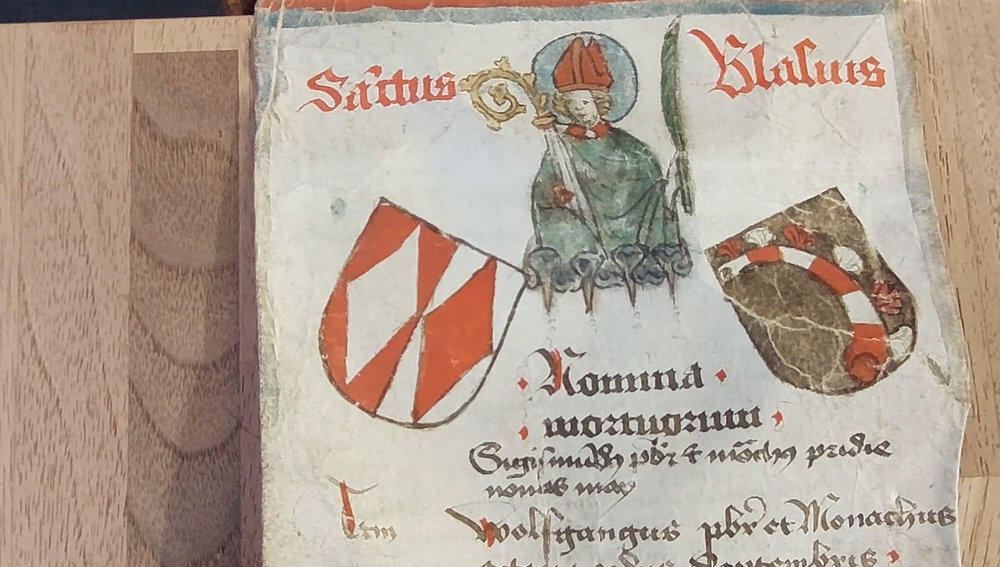 Sāctus Blasius
· Nomina ·
· mortuorum ·
Sigismūdꝰ pb̄r ⁊ mōchꝰ pridie
nonas may
Itm Wolfgangus pbr̄ et Monachus
Septembris ·